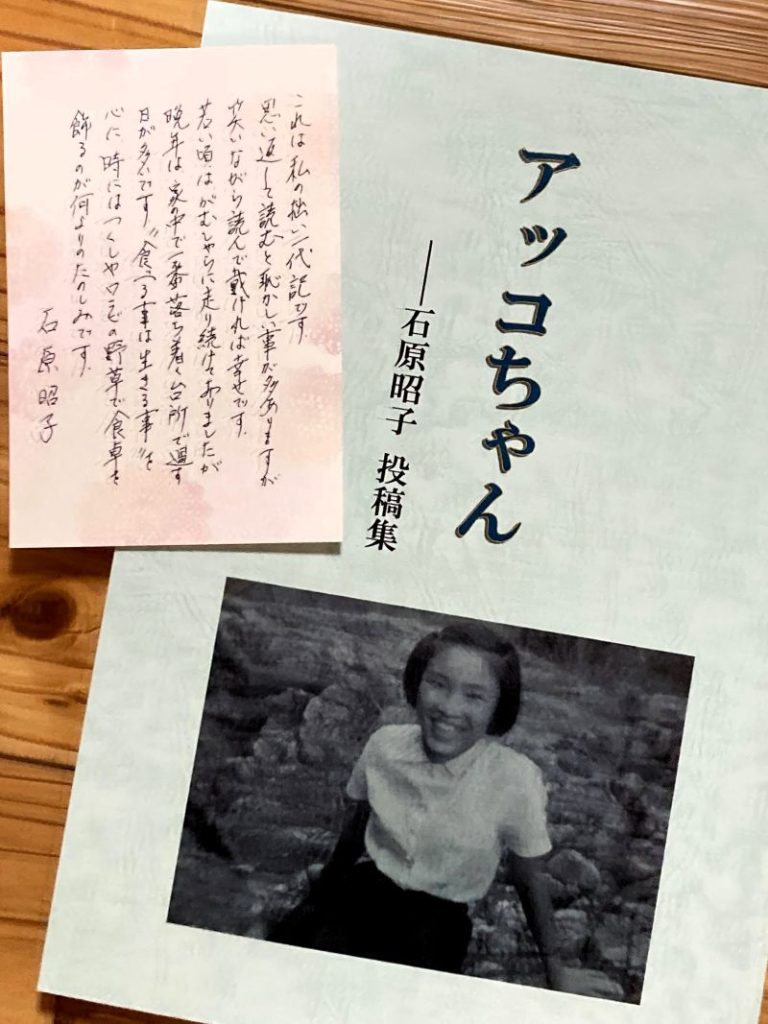 アッコちゃん
――石原昭子 投稿集
これは私の拙い一代記です
思い返して読むと恥かしい事が多々ありますが
笑いながら読んで戴ければ幸せです。
若い頃はがむしゃらに走り続けておりましたが
晩年は、家の中で一番落ち着く台所で過す
日が多いです。“食べる事は生きる事”を
心に 時にはつくしやワラビの野草で食卓を
飾るのが何よりのたのしみです。
石原昭子